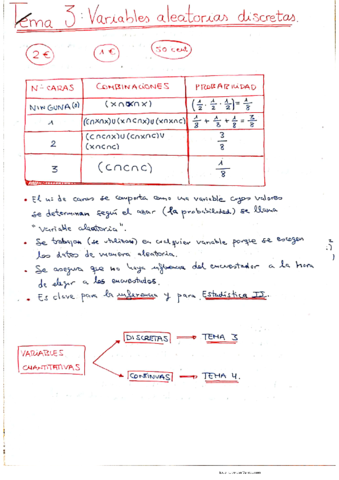 Tema 3: Variables aleatorias discretas.
2 €
1 €
50 cent
Nº CARAS
COMBINACIONES
PROBABILIDAD
NINGUNA (0)
(x∩x∩x)
(1/2 · 1/2 · 1/2) = 1/8
1
(c∩x∩x)∪(x∩c∩x)∪(x∩x∩c)
1/8 + 1/8 + 1/8 = 3/8
2
(c∩c∩x)∪(c∩x∩c)∪
(x∩c∩c)
3/8
3
(c∩c∩c)
1/8
• El nº de caras se comporta como una variable cuyos valores
se determinan según el azar (la probabilidad) se llama
"variable aleatoria".
• Se trabajan (se utilizan) en cualquier variable porque se escogen
los datos de manera aleatoria.
• Se asegura que no haya influencia del encuestador a la hora
de elegir a los encuestados.
• Es clave para la inferencia y para Estadística II.
VARIABLES
CUANTITATIVAS
DISCRETAS → TEMA 3
CONTINUAS → TEMA 4.